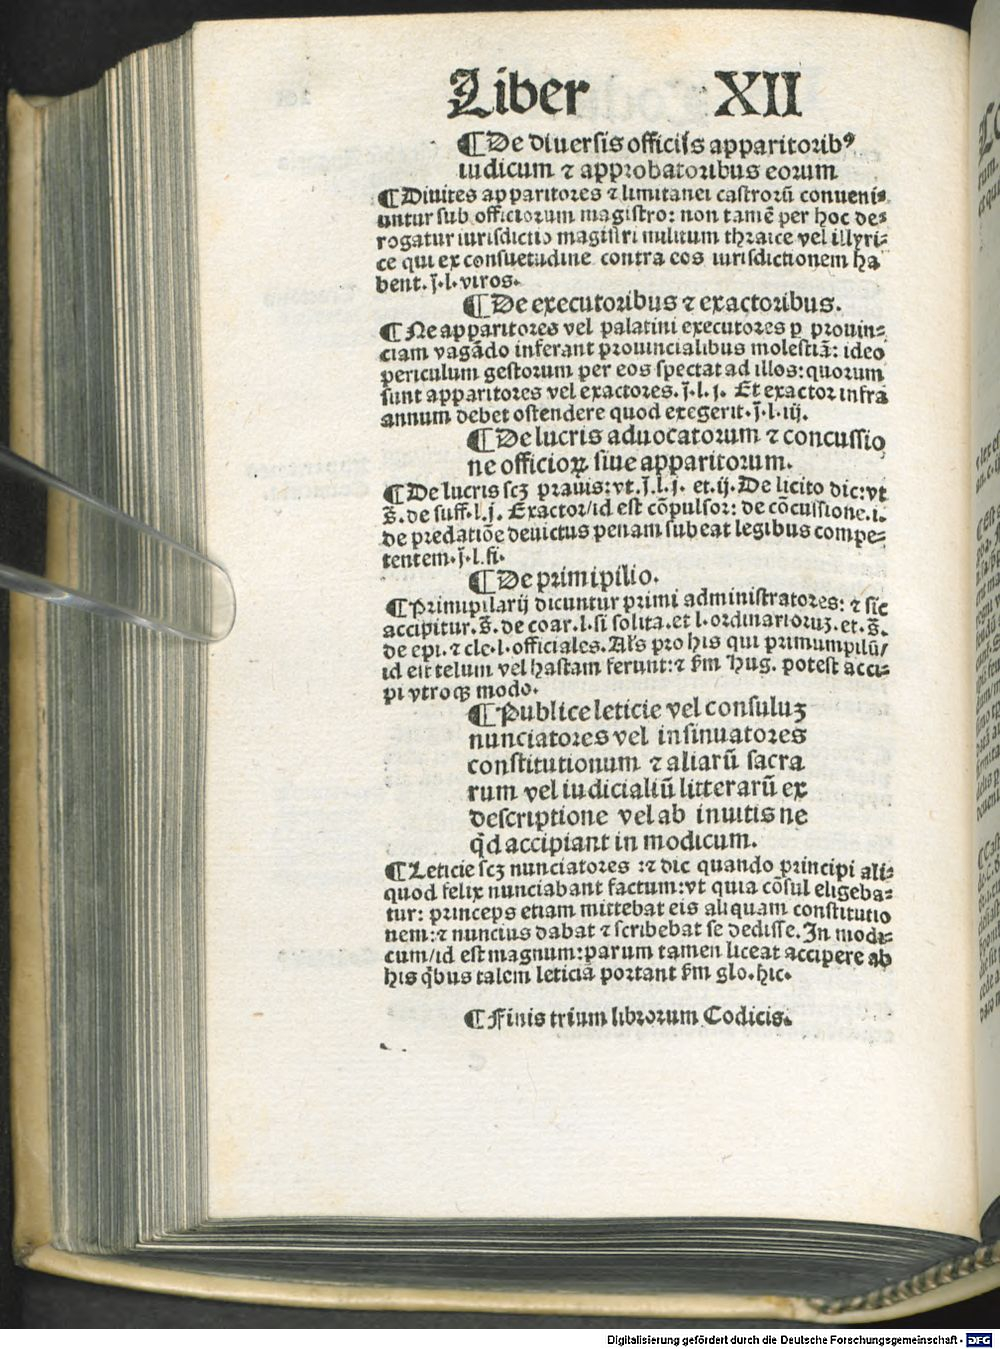 Liber XII
¶De diuersis officijs apparitoribꝰ
iudicum ⁊ approbatoribus eorum
¶Diuites apparitores ⁊ limitanei castrorū conueni⸗
untur sub officiorum magistro: non tamē per hoc de⸗
rogatur iurisdictio magistri militum thraice vel illyri⸗
ce qui ex consuetudine contra eos iurisdictionem ha
bent. j̄.l. viros.
¶De executoribus ⁊ exactoribus.
¶Ne apparitores vel palatini executores ꝑ prouin⸗
ciam vagādo inferant prouincialibus molestiā: ideo
periculum gestorum per eos spectat ad illos: quorum
sunt apparitores vel exactores. j̄.l.j. Et exactor infra
annum debet ostendere quod exegerit. j̄.l.iij.
¶De lucris aduocatorum ⁊ concussio
ne officioꝝ siue apparitorum.
¶De lucris scꝫ prauis: vt. j̄.l.j. et.ij. De licito dic: vt
s̄. de suff.l.j. Exactor/id est cōpulsor: de cōcussione.i.
de predatiōe deuictus penam subeat legibus compe⸗
tentem. j̄.l.fi.
¶De primipilio.
¶Primipilarij dicuntur primi administratores: ⁊ sic
accipitur. s̄. de coar.l.si solita. et l. ordinarioruꝫ. et. s̄.
de epi. ⁊ cle.l. officiales. Al's pro his qui primumpilū/
id est telum vel hastam ferunt: ⁊ fm Hug. potest acci⸗
pi vtroqꝫ modo.
¶Publice leticie vel consuluꝫ
nunciatores vel insinuatores
constitutionum ⁊ aliarū sacra
rum vel iudicialiū litterarū ex
descriptione vel ab inuitis ne
qd accipiant in modicum.
¶Leticie scꝫ nunciatores :⁊ dic quando principi ali⸗
quod felix nunciabant factum: vt quia cōsul eligeba⸗
tur: princeps etiam mittebat eis aliquam constitutio
nem: ⁊ nuncius dabat ⁊ scribebat se dedisse. In modi⸗
cum/id est magnum: parum tamen liceat accipere ab
his qbus talem leticiā portant fm glo. hic.
¶Finis trium librorum Codicis.
Digitalisierung gefördert durch die Deutsche Forschungsgemeinschaft - DFG